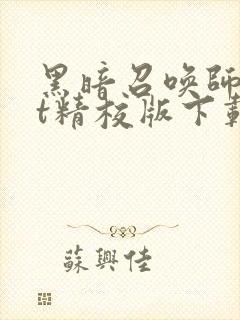 黑暗召唤師
t精校版下載
蘇興佳